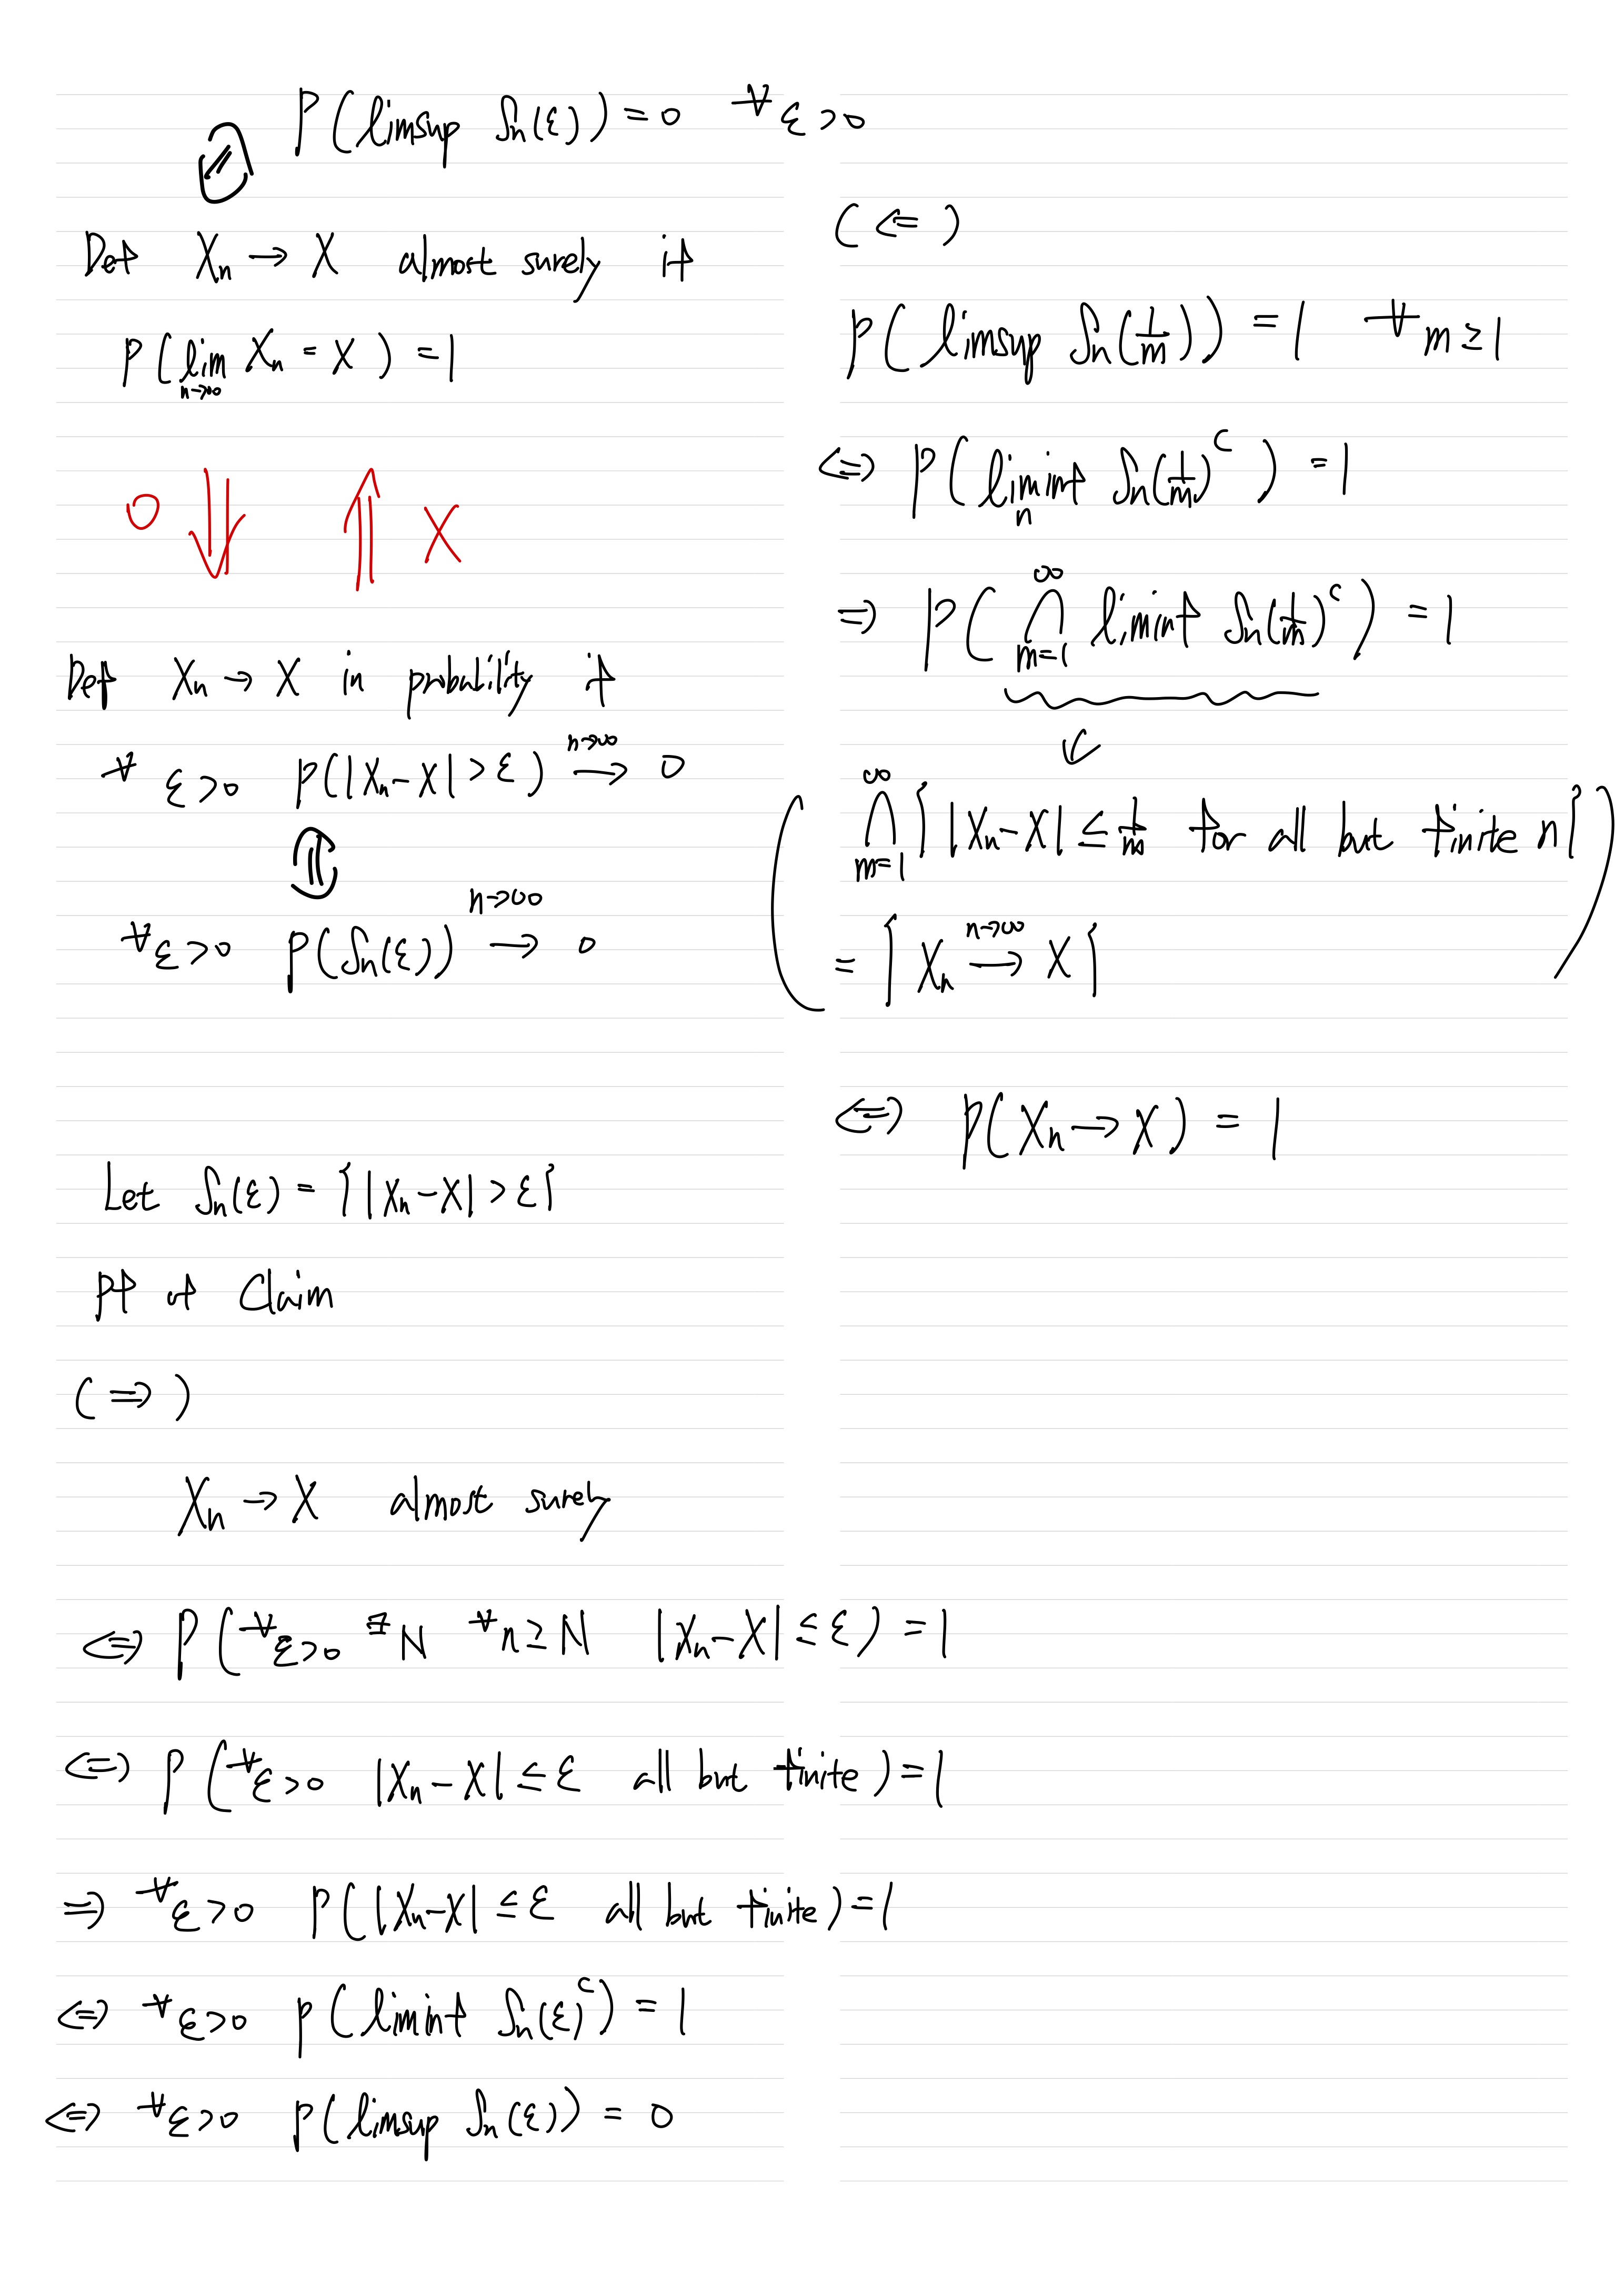 P(limsup Sn(ε)) = 0 ∀ε>0
⇔
Def Xn → X almost surely if
P(lim n→∞ Xn = X) = 1
O ⇓ ⇑ X
Def Xn → X in probability if
∀ε>0 P(|Xn-X|>ε) n→∞ → 0
⇕
∀ε>0 P(Sn(ε)) n→∞ → 0
Let Sn(ε) = {|Xn-X|>ε}
Pf of Claim
(⇒)
Xn → X almost surely
⇔ P(∀ε>0 ∃N ∀n≥N |Xn-X|≤ε) = 1
⇔ P(∀ε>0 |Xn-X|≤ε all but finite) = 1
⇒ ∀ε>0 P(|Xn-X|≤ε all but finite) = 1
⇔ ∀ε>0 P(liminf Sn(ε)^c) = 1
⇔ ∀ε>0 P(limsup Sn(ε)) = 0
(⇐)
P(limsup Sn(1/m)) = 1 ∀m≥1
⇔ P(liminf n Sn(1/m)^c) = 1
⇒ P(∞ ∩ m=1 liminf Sn(1/m)^c) = 1
(∞ ∩ m=1 {|Xn-X|≤1/m for all but finite n}
= {Xn n→∞ → X})
⇔ P(Xn→X) = 1